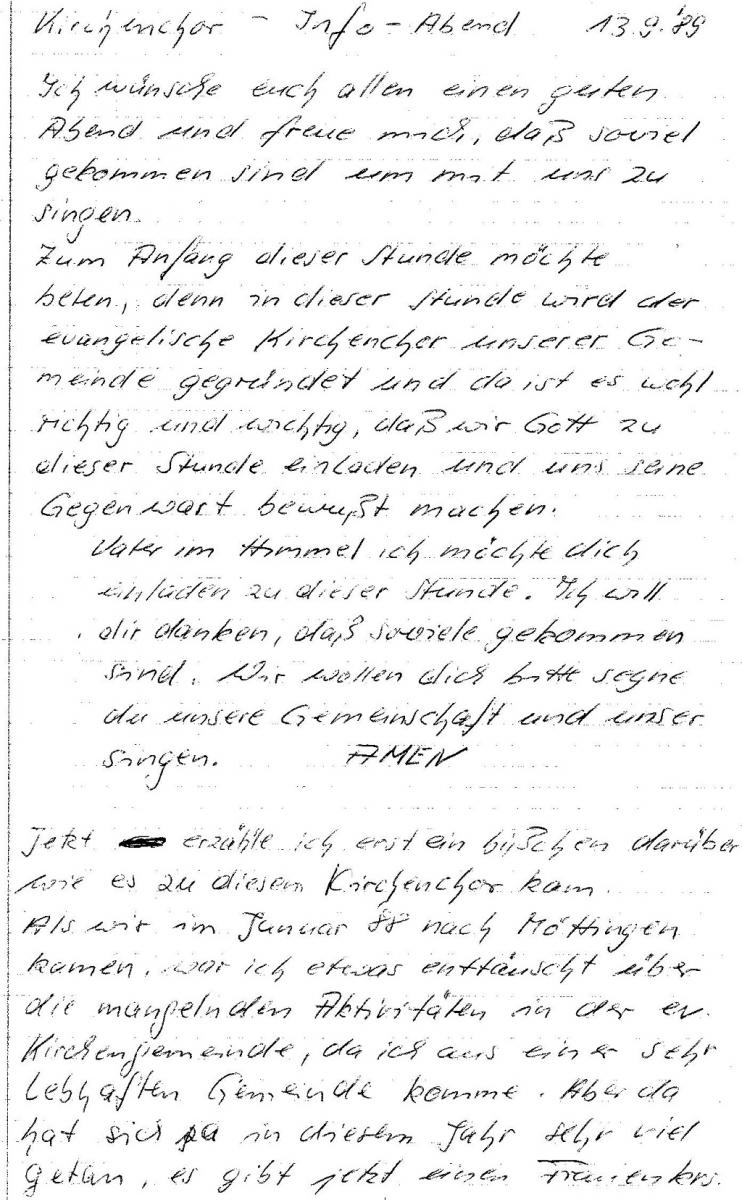 Kirchenchor - Info - Abend 13.9.'89
Ich wünsche euch allen einen guten
Abend und freue mich, daß soviel
gekommen sind um mit uns zu
singen.
Zum Anfang dieser Stunde möchte
beten, denn in dieser Stunde wird der
evangelische Kirchenchor unserer Ge-
meinde gegründet und da ist es wohl
richtig und wichtig, daß wir Gott zu
dieser Stunde einladen und uns seine
Gegenwart bewußt machen.
Vater im Himmel ich möchte dich
einladen zu dieser Stunde. Ich will
dir danken, daß soviele gekommen
sind. Wir wollen dich bitte segne
du unsere Gemeinschaft und unser
singen. AMEN
Jetzt erzähle ich erst ein bißchen darüber
wie es zu diesem Kirchenchor kam.
Als wir im Januar 88 nach Möttingen
kamen, war ich etwas enttäuscht über
die mangelnden Aktivitäten in der ev.
Kirchengemeinde, da ich aus einer sehr
lebhaften Gemeinde komme. Aber da
hat sich ja in diesem Jahr sehr viel
getan, es gibt jetzt einen Frauenkrs.